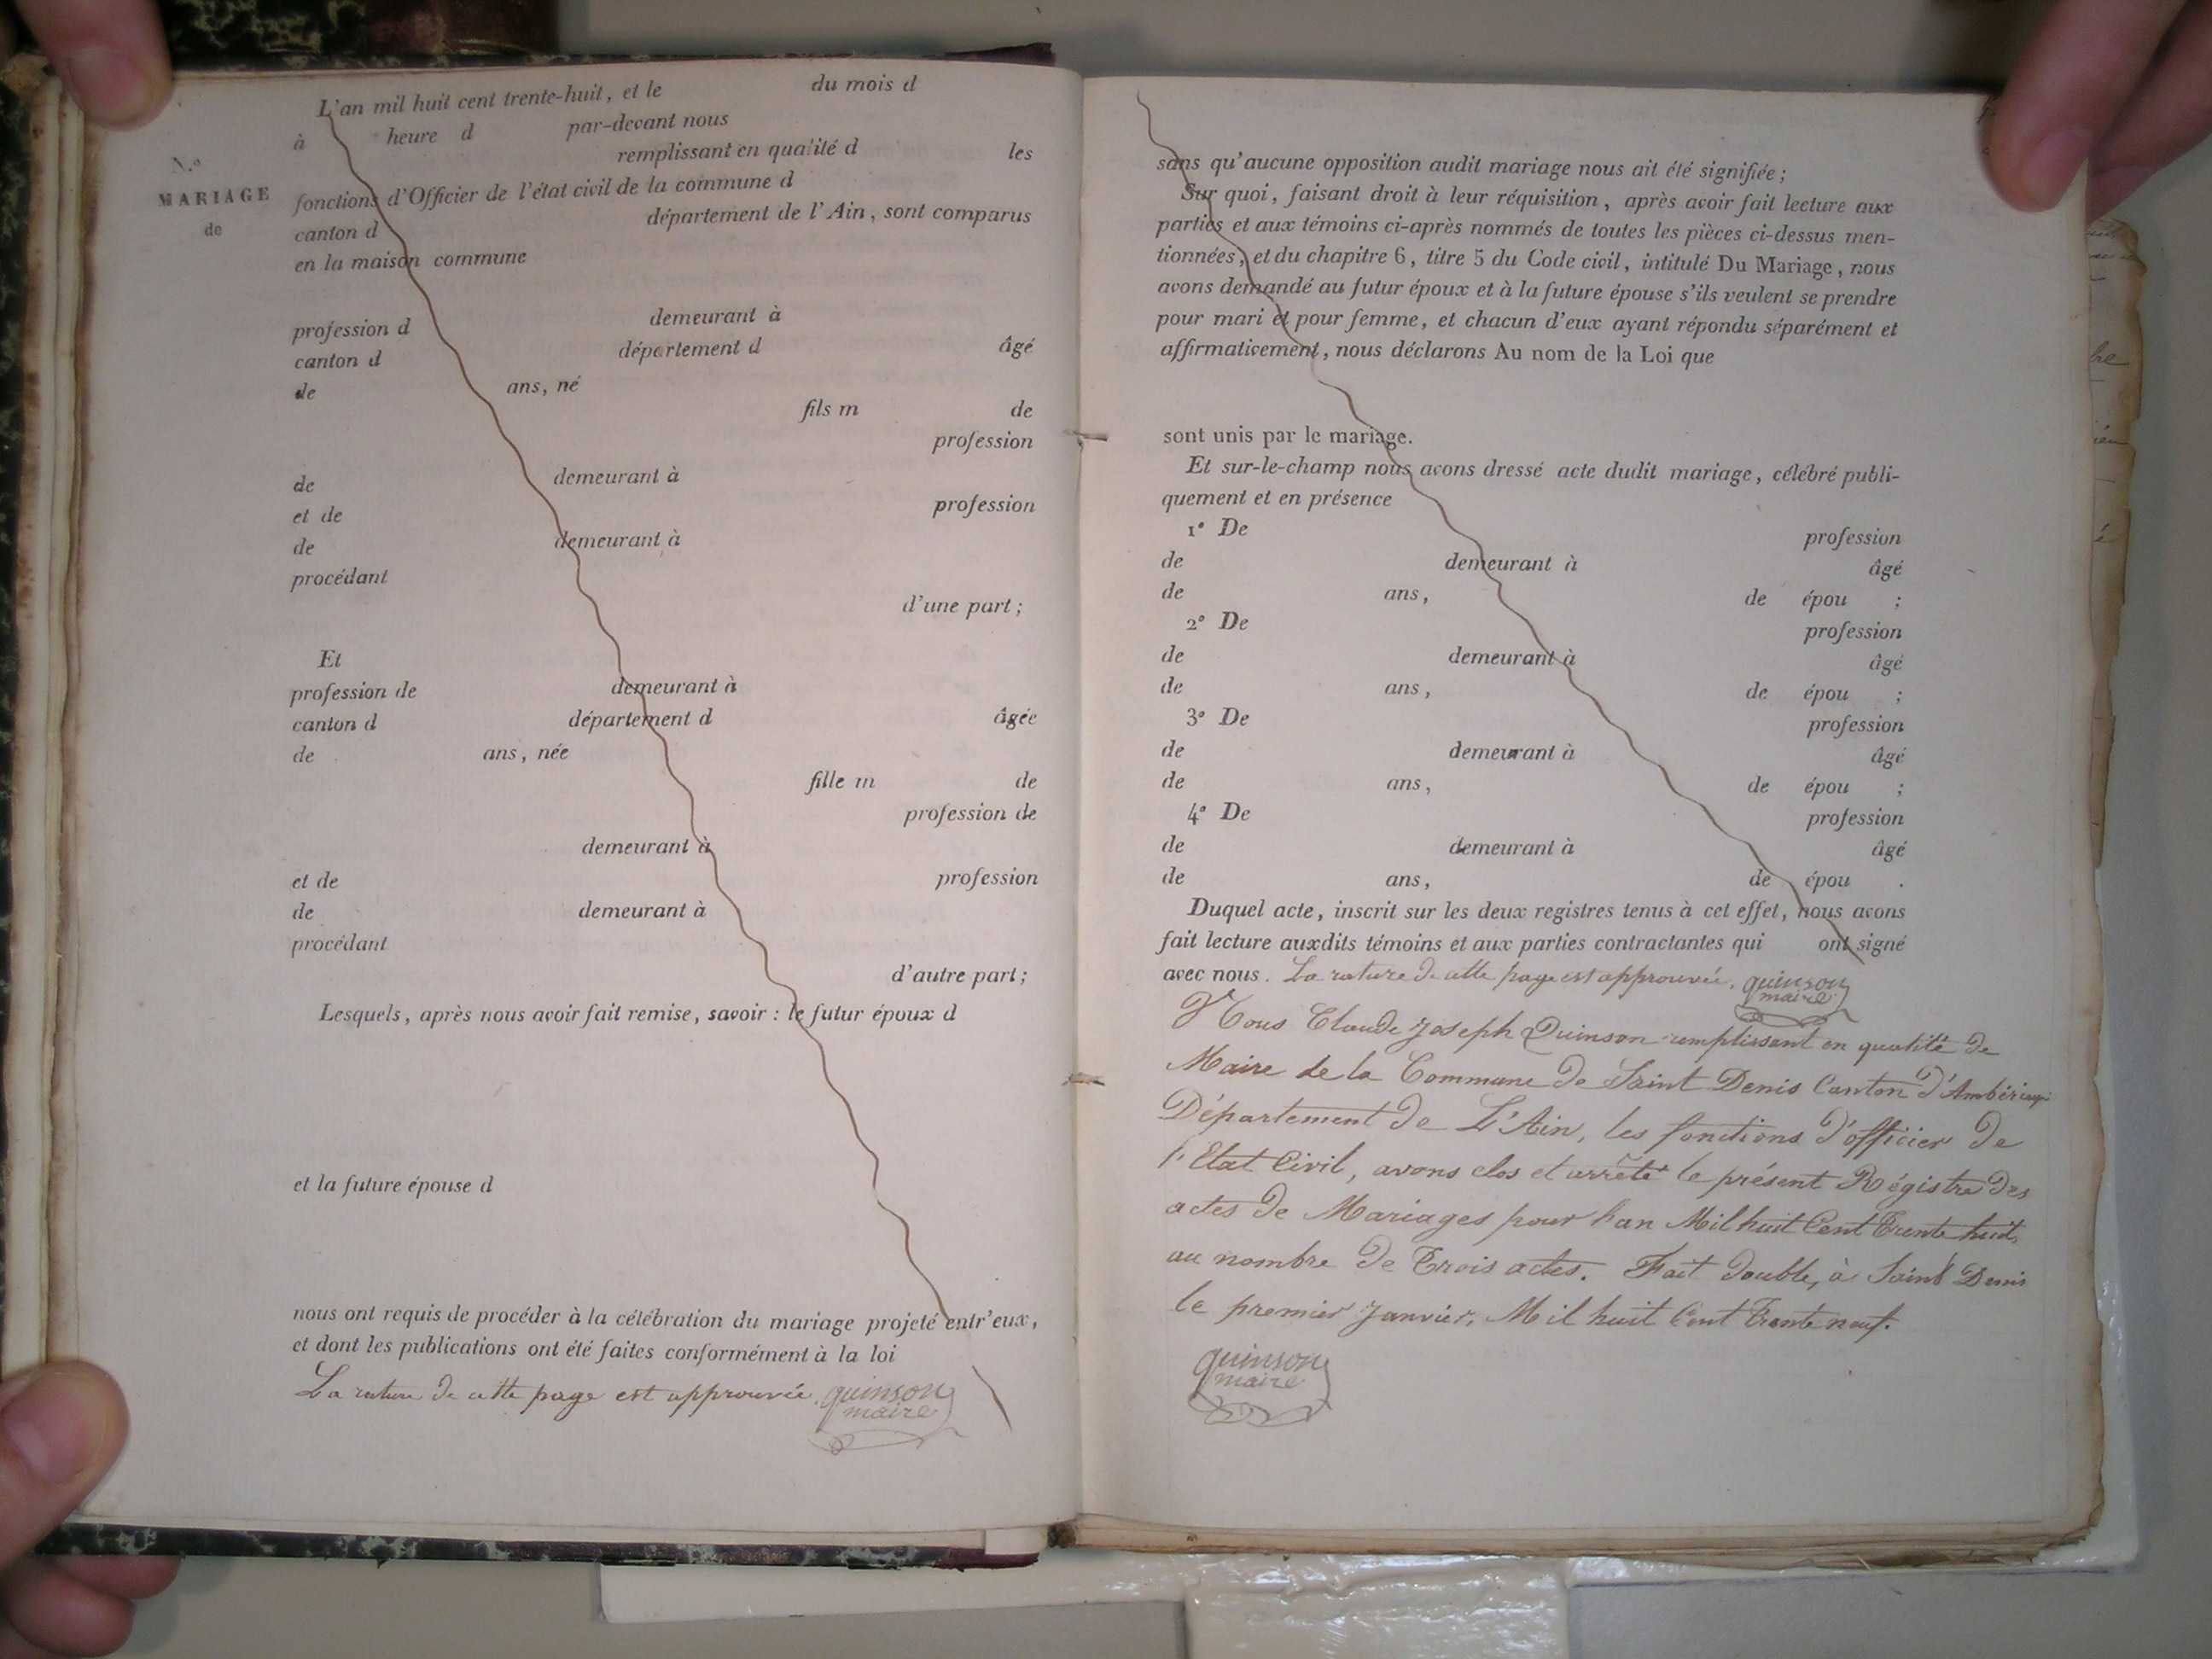 L'an mil huit cent trente-huit, et le du mois d
à heure d par-devant nous
remplissant en qualité d les
fonctions d'Officier de l'état civil de la commune d
canton d département de l'Ain, sont comparus
en la maison commune
N.º
MARIAGE
de
profession d demeurant à
canton d département d âgé
de ans, né
fils m de
profession
de demeurant à
et de profession
de demeurant à
procédant
d'une part;
Et
profession de demeurant à
canton d département d âgée
de ans, née
fille m de
profession de
demeurant à
et de profession
de demeurant à
procédant
d'autre part;
Lesquels, après nous avoir fait remise, savoir : le futur époux d
et la future épouse d
nous ont requis de procéder à la célébration du mariage projeté entr'eux,
et dont les publications ont été faites conformément à la loi
La rature de cette page est approuvée. quinson
maire
sans qu'aucune opposition audit mariage nous ait été signifiée;
Sur quoi, faisant droit à leur réquisition, après avoir fait lecture aux
parties et aux témoins ci-après nommés de toutes les pièces ci-dessus men-
tionnées, et du chapitre 6, titre 5 du Code civil, intitulé Du Mariage, nous
avons demandé au futur époux et à la future épouse s'ils veulent se prendre
pour mari et pour femme, et chacun d'eux ayant répondu séparément et
affirmativement, nous déclarons Au nom de la Loi que
sont unis par le mariage.
Et sur-le-champ nous avons dressé acte dudit mariage, célébré publi-
quement et en présence
1º De profession
de demeurant à âgé
de ans, de épou ;
2º De profession
de demeurant à âgé
de ans, de épou ;
3º De profession
de demeurant à âgé
de ans, de épou ;
4º De profession
de demeurant à âgé
de ans, de épou .
Duquel acte, inscrit sur les deux registres tenus à cet effet, nous avons
fait lecture auxdits témoins et aux parties contractantes qui ont signé
avec nous. La rature de cette page est approuvée. quinson
maire
Nous Claude Joseph Quinson remplissant en qualité de
Maire de la Commune de Saint Denis Canton d'Ambérieux
Département de L'Ain, les fonctions d'officier de
l'Etat Civil, avons clos et arrêté le présent Régistre des
actes de Mariages pour l'an Mil huit Cent Trente huit,
au nombre de Trois actes. Fait double, à Saint Denis
le premier Janvier, Mil huit Cent Trente neuf.
quinson
maire